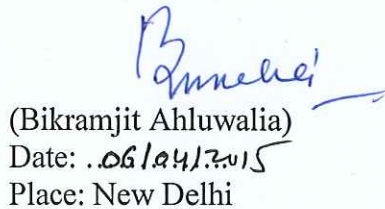 (Bikramjit Ahluwalia)
Date: ..06/04/2015
Place: New Delhi